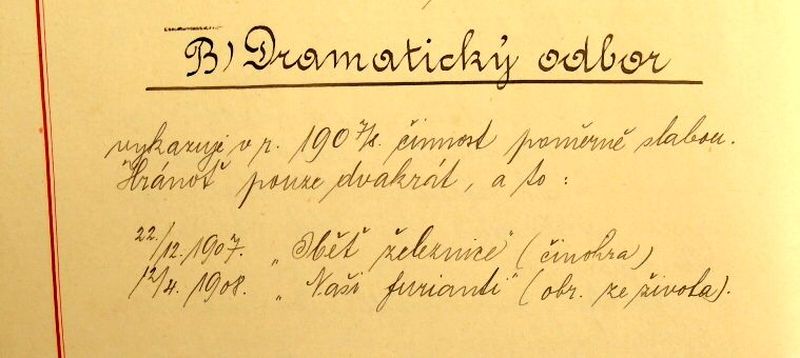 B) Dramatický odbor
vykazuje v r. 1907/8. činnost poměrně slabou.
Hránoť pouze dvakrát, a to:
22./12. 1907. „Oběť železnice" (činohra)
12/4. 1908. „Naši furianti" (obr. ze života).